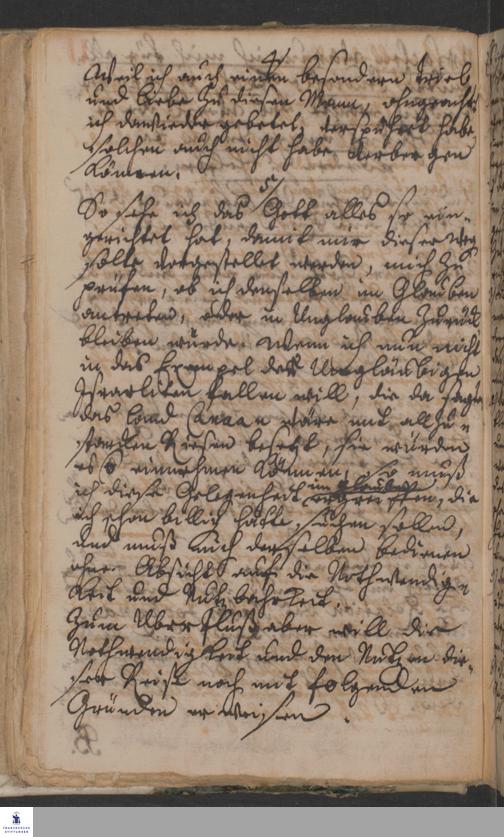 4/
Weil ich auch einen besondern Trieb
und Liebe zu diesen Mann, ohngeacht
ich dawieder gebetet, verspühret habe
solchen auch nicht habe verbergen
können.
5/
So sehe ich das Gott alles so ein-
gerichtet hat, damit mir dieser Weg
solte vorgestellet werden, mich zu
prüfen, ob ich denselben im Glauben
antreten, oder in Unglauben zurück
bleiben würde. Wenn ich nun nicht
in das Exempel der Ungläubigen
Israeliten fallen will, die da sagten
das Land Canaan wäre mit allzu-
starcken Riesen besetzt, sie würden
es einnehmen können, so muß
ich diese Gelegenheit im Glauben ergreiffen, die
ich schon billig hätte suchen sollen,
und muß mich derselben bedienen
ohne Absicht auf die Nothwendig-
keit und Nutzbahrkeit.
Zum Uberfluß aber will die
Nothwendigkeit und den Nutzen die-
ser Reise noch mit folgenden
Gründen erweisen.
FRANCKESCHE
STIFTUNGEN